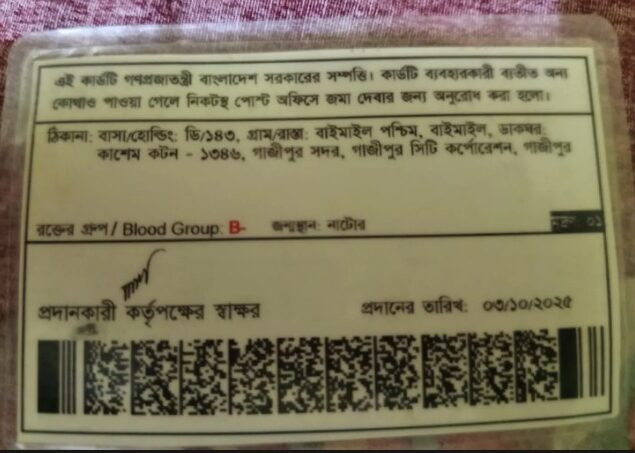 এই কার্ডটি গণপ্রজাতন্ত্রী বাংলাদেশ সরকারের সম্পত্তি। কার্ডটি ব্যবহারকারী ব্যতীত অন্য
কোথাও পাওয়া গেলে নিকটস্থ পোস্ট অফিসে জমা দেবার জন্য অনুরোধ করা হলো।
ঠিকানা: বাসা/হোল্ডিং: ডি/১৪৩, গ্রাম/রাস্তা: বাইমাইল পশ্চিম, বাইমাইল, ডাকঘর:
কাশেম কটন - ১৩৪৬, গাজীপুর সদর, গাজীপুর সিটি কর্পোরেশন, গাজীপুর
রক্তের গ্রুপ / Blood Group: B- জন্মস্থান: নাটোর
প্রদানকারী কর্তৃপক্ষের স্বাক্ষর প্রদানের তারিখ: ০৩/১০/২০২৫